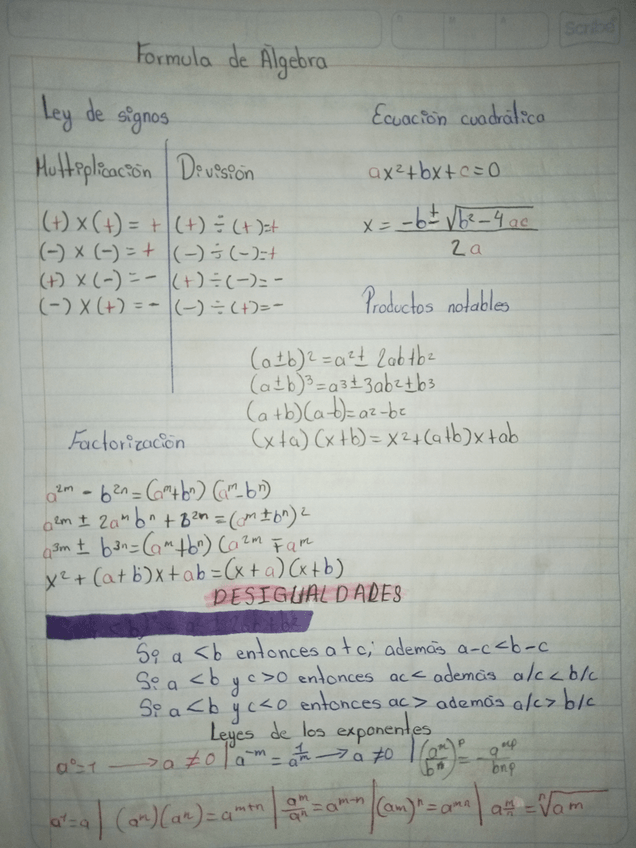 Scribe
Formula de Algebra
Ley de signos
Ecuación cuadrática
Multiplicación | División
ax²+bx+c=0
(+) x (+) = + | (+) ÷ (+)=+
(-) x (-) = + | (-) ÷ (-)=+
(+) x (-) = - | (+) ÷ (-)= -
(-) x (+) = - | (-) ÷ (+)= -
x = -b±√b²-4ac / 2a
Productos notables
(a±b)² = a²± 2ab+b²
(a±b)³=a3±3ab²±b3
(a+b)(a-b)=a²-b²
(x+a)(x+b)= x²+(a+b)x+ab
Factorización
a²ᵐ - b²ⁿ=(aᵐ+bⁿ)(aᵐ-bⁿ)
a²ᵐ ± 2aᵐbⁿ + B²ⁿ=(aᵐ±bⁿ)²
a³ᵐ ± b³ⁿ=(aᵐ+bⁿ)(a²ᵐ ∓aᵐ
x²+(a+b)x+ab=(x+a)(x+b)
DESIGUALDADES
Si a <b entonces a+c; además a-c<b-c
Si a <b y c>0 entonces ac< además a/c<b/c
Si a <b y c<0 entonces ac> además a/c>b/c
Leyes de los exponentes
a⁰=1 → a ≠0 | a⁻ᵐ= 1/aᵐ → a ≠0 | (aᵐ/bⁿ)ᵖ = aᵐᵖ/bnp
a¹=a | (aᵐ)(aⁿ)=aᵐ⁺ⁿ | aᵐ/aⁿ=aᵐ⁻ⁿ | (am)ⁿ=aᵐⁿ | a m/n = ⁿ√am